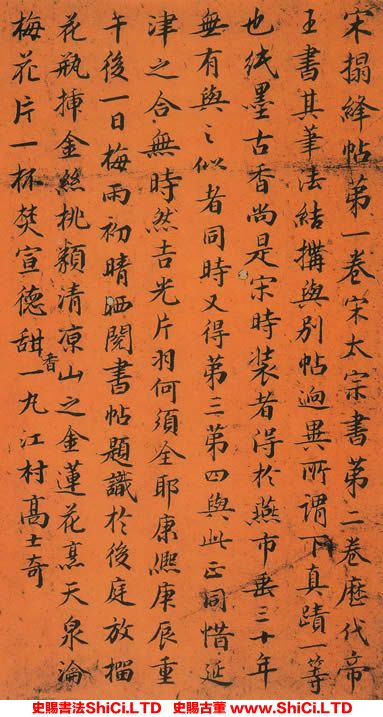 宋搨絳帖第一卷宋太宗書第二卷歷代帝
王書其筆法結搆與別帖迥異所謂下真蹟一等
也紙墨古香尚是宋時装者得於燕市垂三十年
無有與之似者同時又得第三第四與此正同惜延
津之合無時然吉光片羽何須全耶康熙庚辰重
午後一日梅雨初晴晒閱書帖題識於後庭放橊
花瓶揷金絲桃纇清凉山之金蓮花烹天泉瀹
梅花片一杯焚宣德甜香一丸江村髙士奇
史賜書法ShiCi.LTD 史賜古董 www.ShiCi.LTD